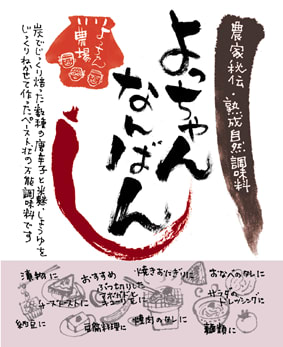 農家秘伝・熟成自然調味料
よっちゃん
なんばん
よっちゃん
農場
炭でじっくり焙った数種の唐辛子と米麹・しょうゆを
じっくりねかせて作ったペースト状の万能調味料です
漬物に
おすすめ
焼きおにぎりに
おなべのタレに
チーズトーストに
ぶつ切りした
アボカドと
キュウリで
サラダの
ドレッシングに
納豆に
豆腐料理に
焼肉のタレに
麺類に